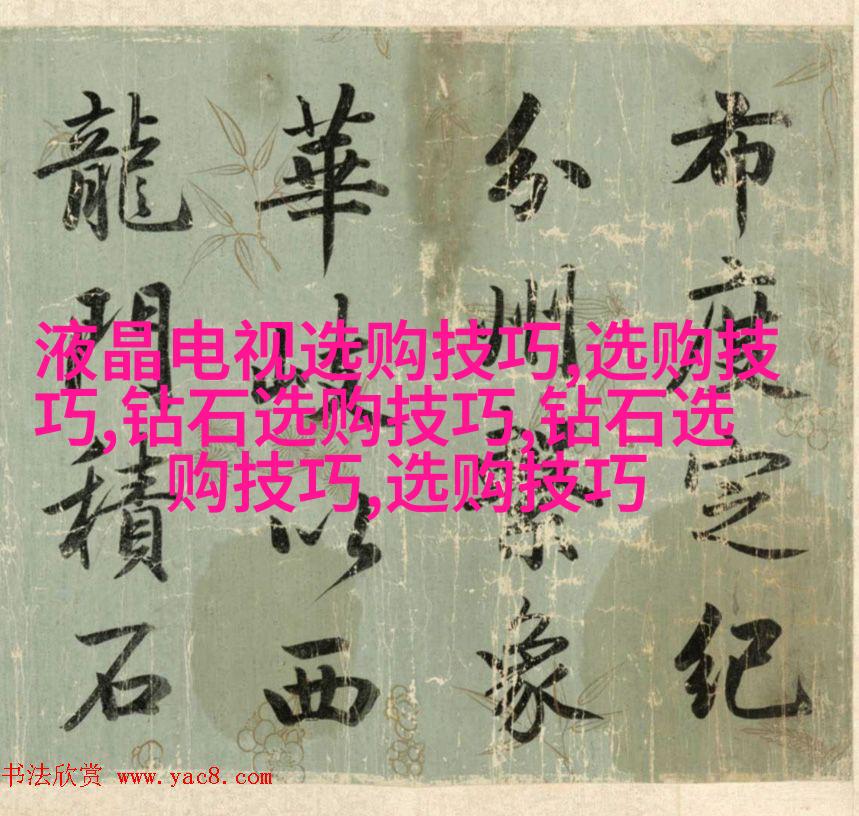 布度定紀
分州繫象
華以西
龍門積石
液晶电视选购技巧,选购技
巧,钻石选购技巧,钻石选
购技巧,选购技巧
书法欣赏 www.yac8.com